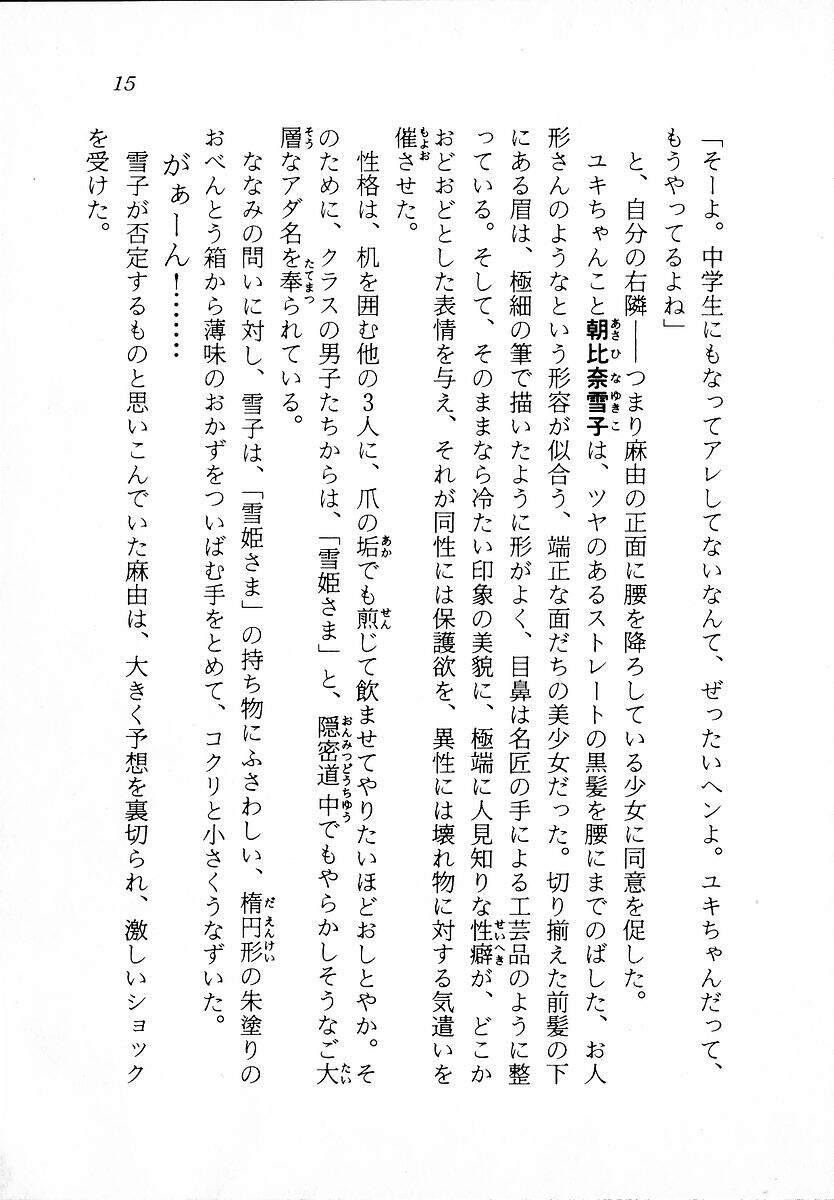 15
「そーよ。中学生にもなってアレしてないなんて、ぜったいヘンよ。ユキちゃんだって、
もうやってるよね」
と、自分の右隣――つまり麻由の正面に腰を降ろしている少女に同意を促した。
ユキちゃんこと朝比奈雪子は、ツヤのあるストレートの黒髪を腰にまでのばした、お人
形さんのようなという形容が似合う、端正な面だちの美少女だった。切り揃えた前髪の下
にある眉は、極細の筆で描いたように形がよく、目鼻は名匠の手による工芸品のように整
っている。そして、そのままなら冷たい印象の美貌に、極端に人見知りな性癖が、どこか
おどおどとした表情を与え、それが同性には保護欲を、異性には壊れ物に対する気遣いを
催させた。
性格は、机を囲む他の3人に、爪の垢でも煎じて飲ませてやりたいほどおしとやか。そ
のために、クラスの男子たちからは、「雪姫さま」と、隠密道中でもやらかしそうなご大
層なアダ名を奉られている。
ななみの問いに対し、雪子は、「雪姫さま」の持ち物にふさわしい、楕円形の朱塗りの
おべんとう箱から薄味のおかずをついばむ手をとめて、コクリと小さくうなずいた。
がぁーん！……
雪子が否定するものと思いこんでいた麻由は、大きく予想を裏切られ、激しいショック
を受けた。